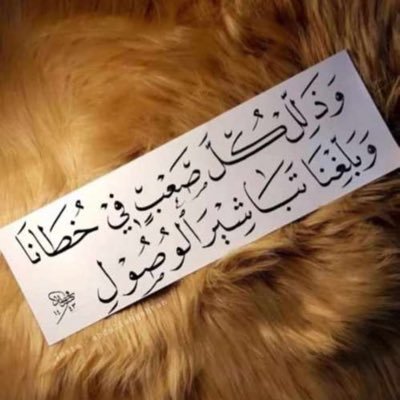 وَذَلِّلْ كُلَّ صَعْبٍ فِي خُطَانَا
وَبَلِّغْنَا تَبَاشِيرَ الْوُصُولِ